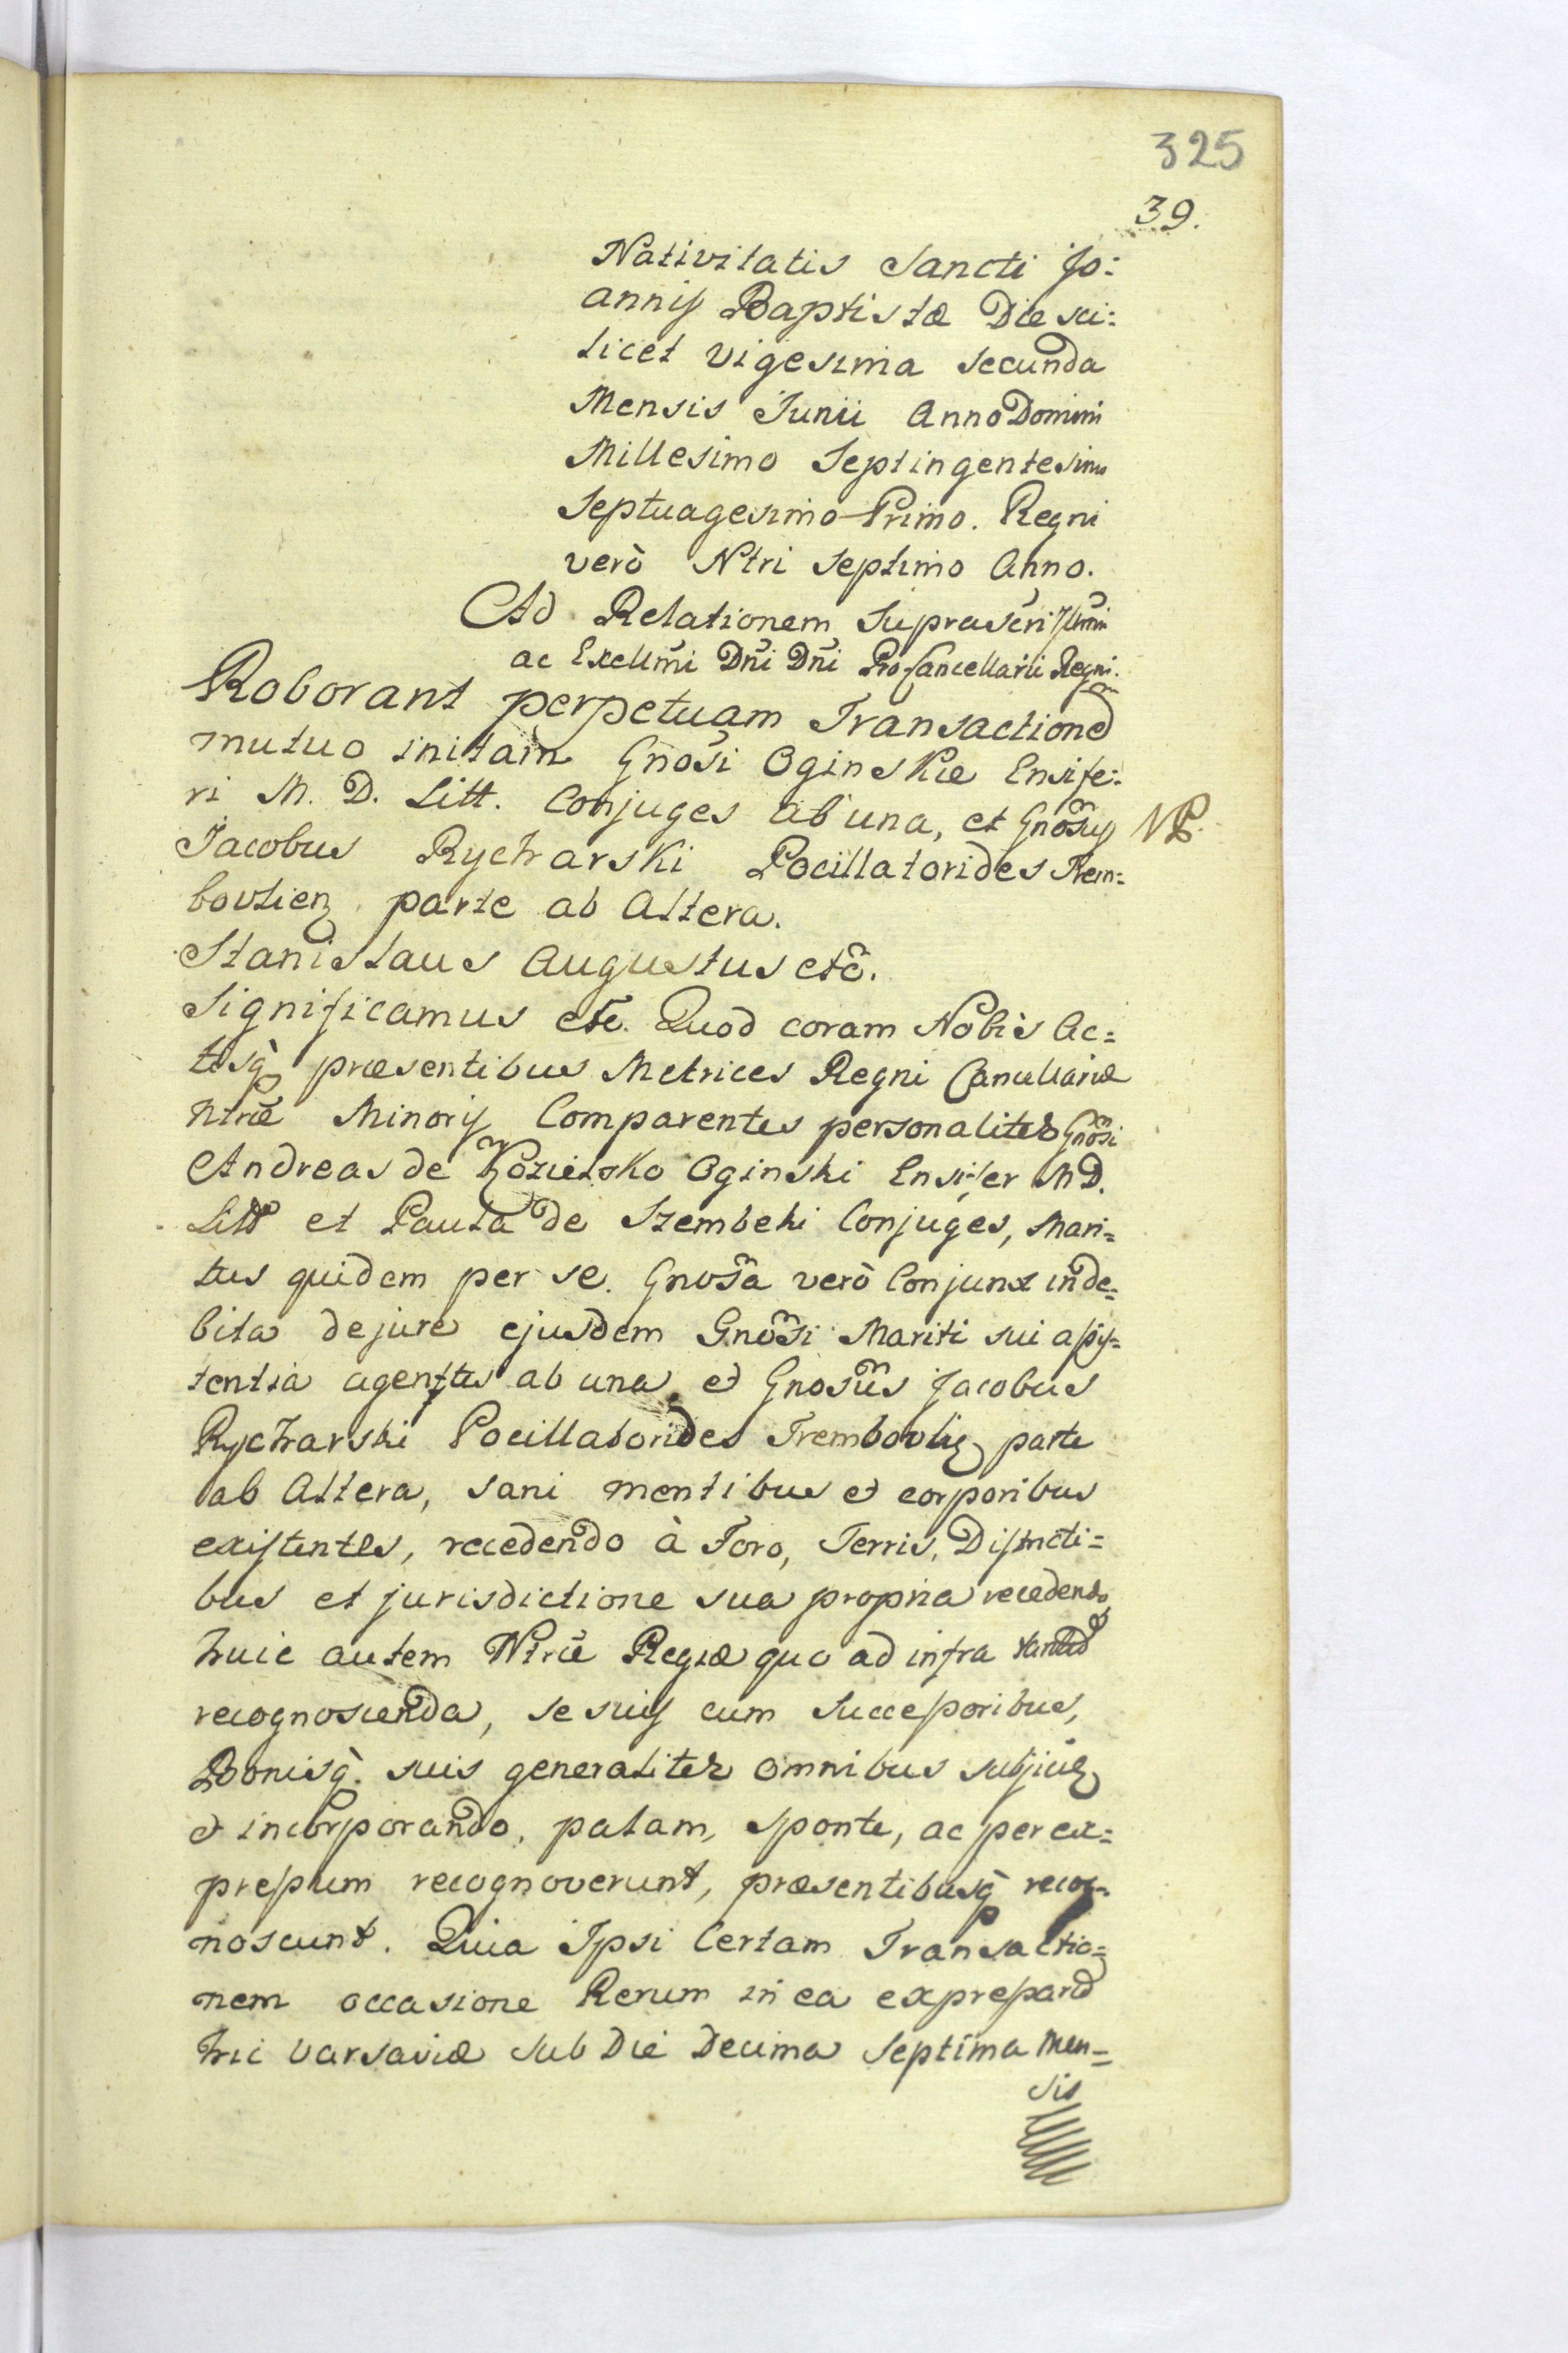 325
39.
Nativitatis Sancti Jo:
annis Baptistæ Die sci:
licet vigesima secunda
Mensis Junii Anno Domini
Millesimo Septingentesimo
Septuagesimo Primo. Regni
verò Ntri Septimo Anno.
Ad Relationem Suprascri Illmi
ac Excllmi Dni Dni Procancellarii Regni.
Roborant perpetuam Transactionem
mutuo initam Gnosi Oginskie Ensife:
ri M. D. Litt. Conjuges ab una, et Gnosus NB.
Jacobus Rycharski Pocillatorides Trem:
bovlien parte ab Altera.
Stanislaus Augustus etc.
Significamus etc. Quod coram Nobis Ac=
tisq præsentibus Metrices Regni Cancellariæ
Ntræ Minoris Comparentes personaliter Gnosi
Andreas de Kozielsko Oginski Ensifer M D.
Litt et Paula de Szembeki Conjuges, Mari=
tus quidem per se. Gnosa verò Conjunx in de=
bita de jure ejusdem Gnosi Mariti sui assis=
tentia agentes ab una et Gnosus Jacobus
Rycharski Pocillatorides Trembovlien parte
ab Altera, sani mentibus et corporibus
existentes, recedendo à Foro, Terris, Districti=
bus et jurisdictione sua propria recedendo,
huic autem Ntræ Regiæ quo ad infra
recognoscenda, se suis cum successoribus,
Bonisq. suis generaliter omnibus subjicien
et incorporando, palam, sponte, ac per ex=
pressum recognoverunt, præsentibusq recog=
noscunt. Quia Ipsi Certam Transactio=
nem occasione Rerum in ea expressarum
hic Varsaviæ sub Die Decima Septima Men=
sis